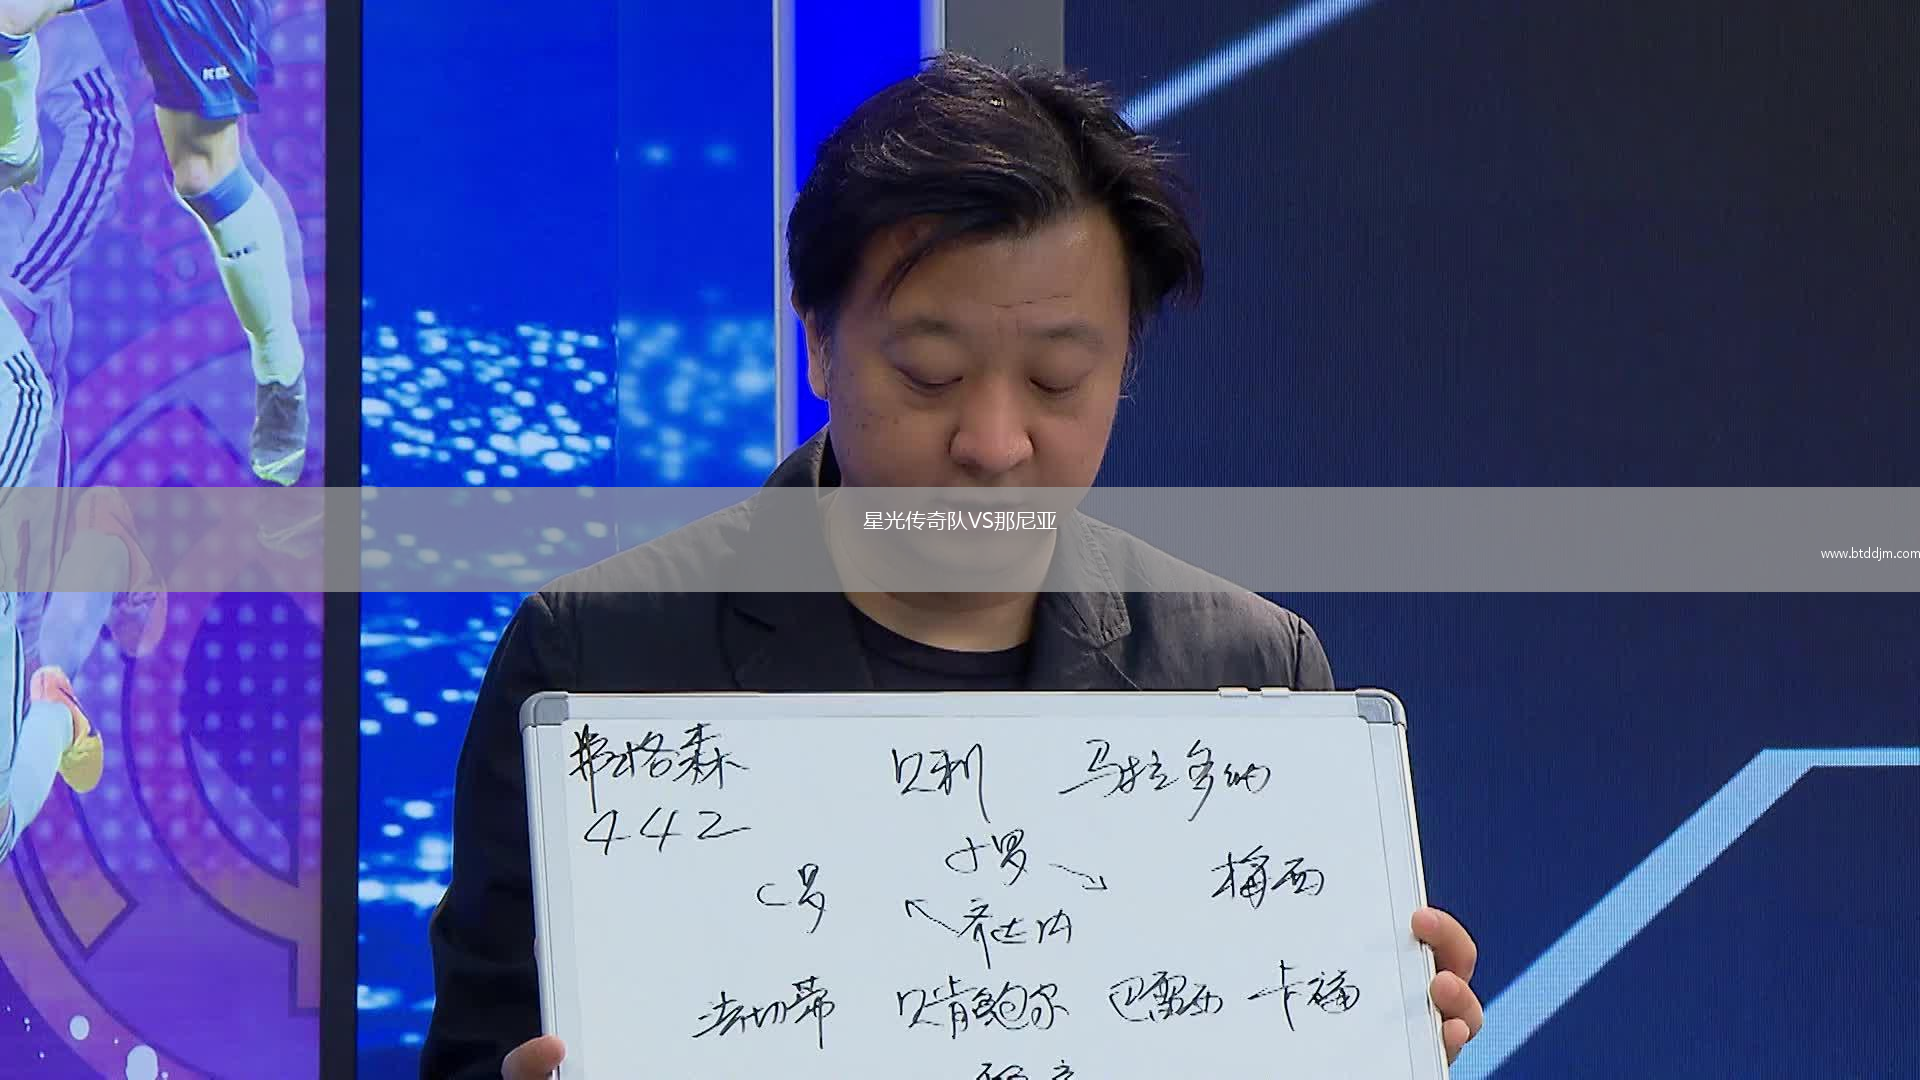 星光传奇队VS那尼亚
www.btddjm.com
弗格森 贝利 马拉多纳
442
小罗
C罗 梅西
齐达内
法切蒂 贝肯鲍尔 巴雷西 卡福